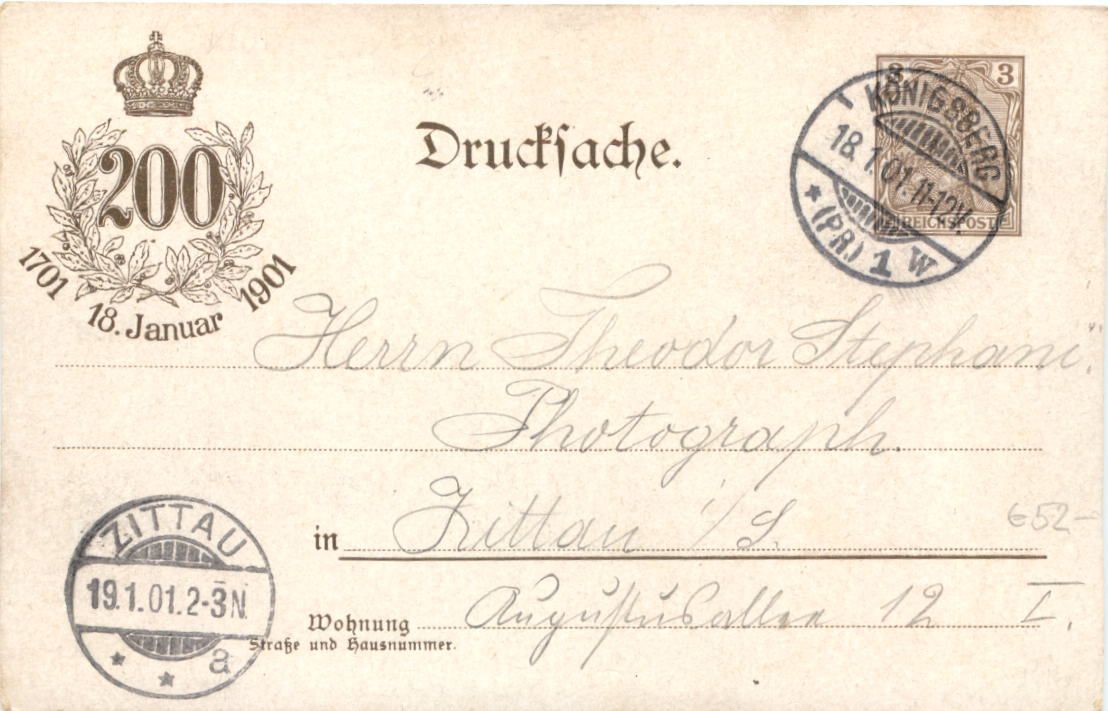 200
1701 18. Januar 1901
Drucksache.
3 3
REICHSPOST
KÖNIGSBERG
18.1.01.11-12V.
* (PR.) 1 W
Herrn Theodor Stephani,
Photograph.
in Zittau i/S.
652-
Wohnung Augustusallee 12 I.
Straße und Hausnummer.
ZITTAU
19.1.01.2-3N.
* * a